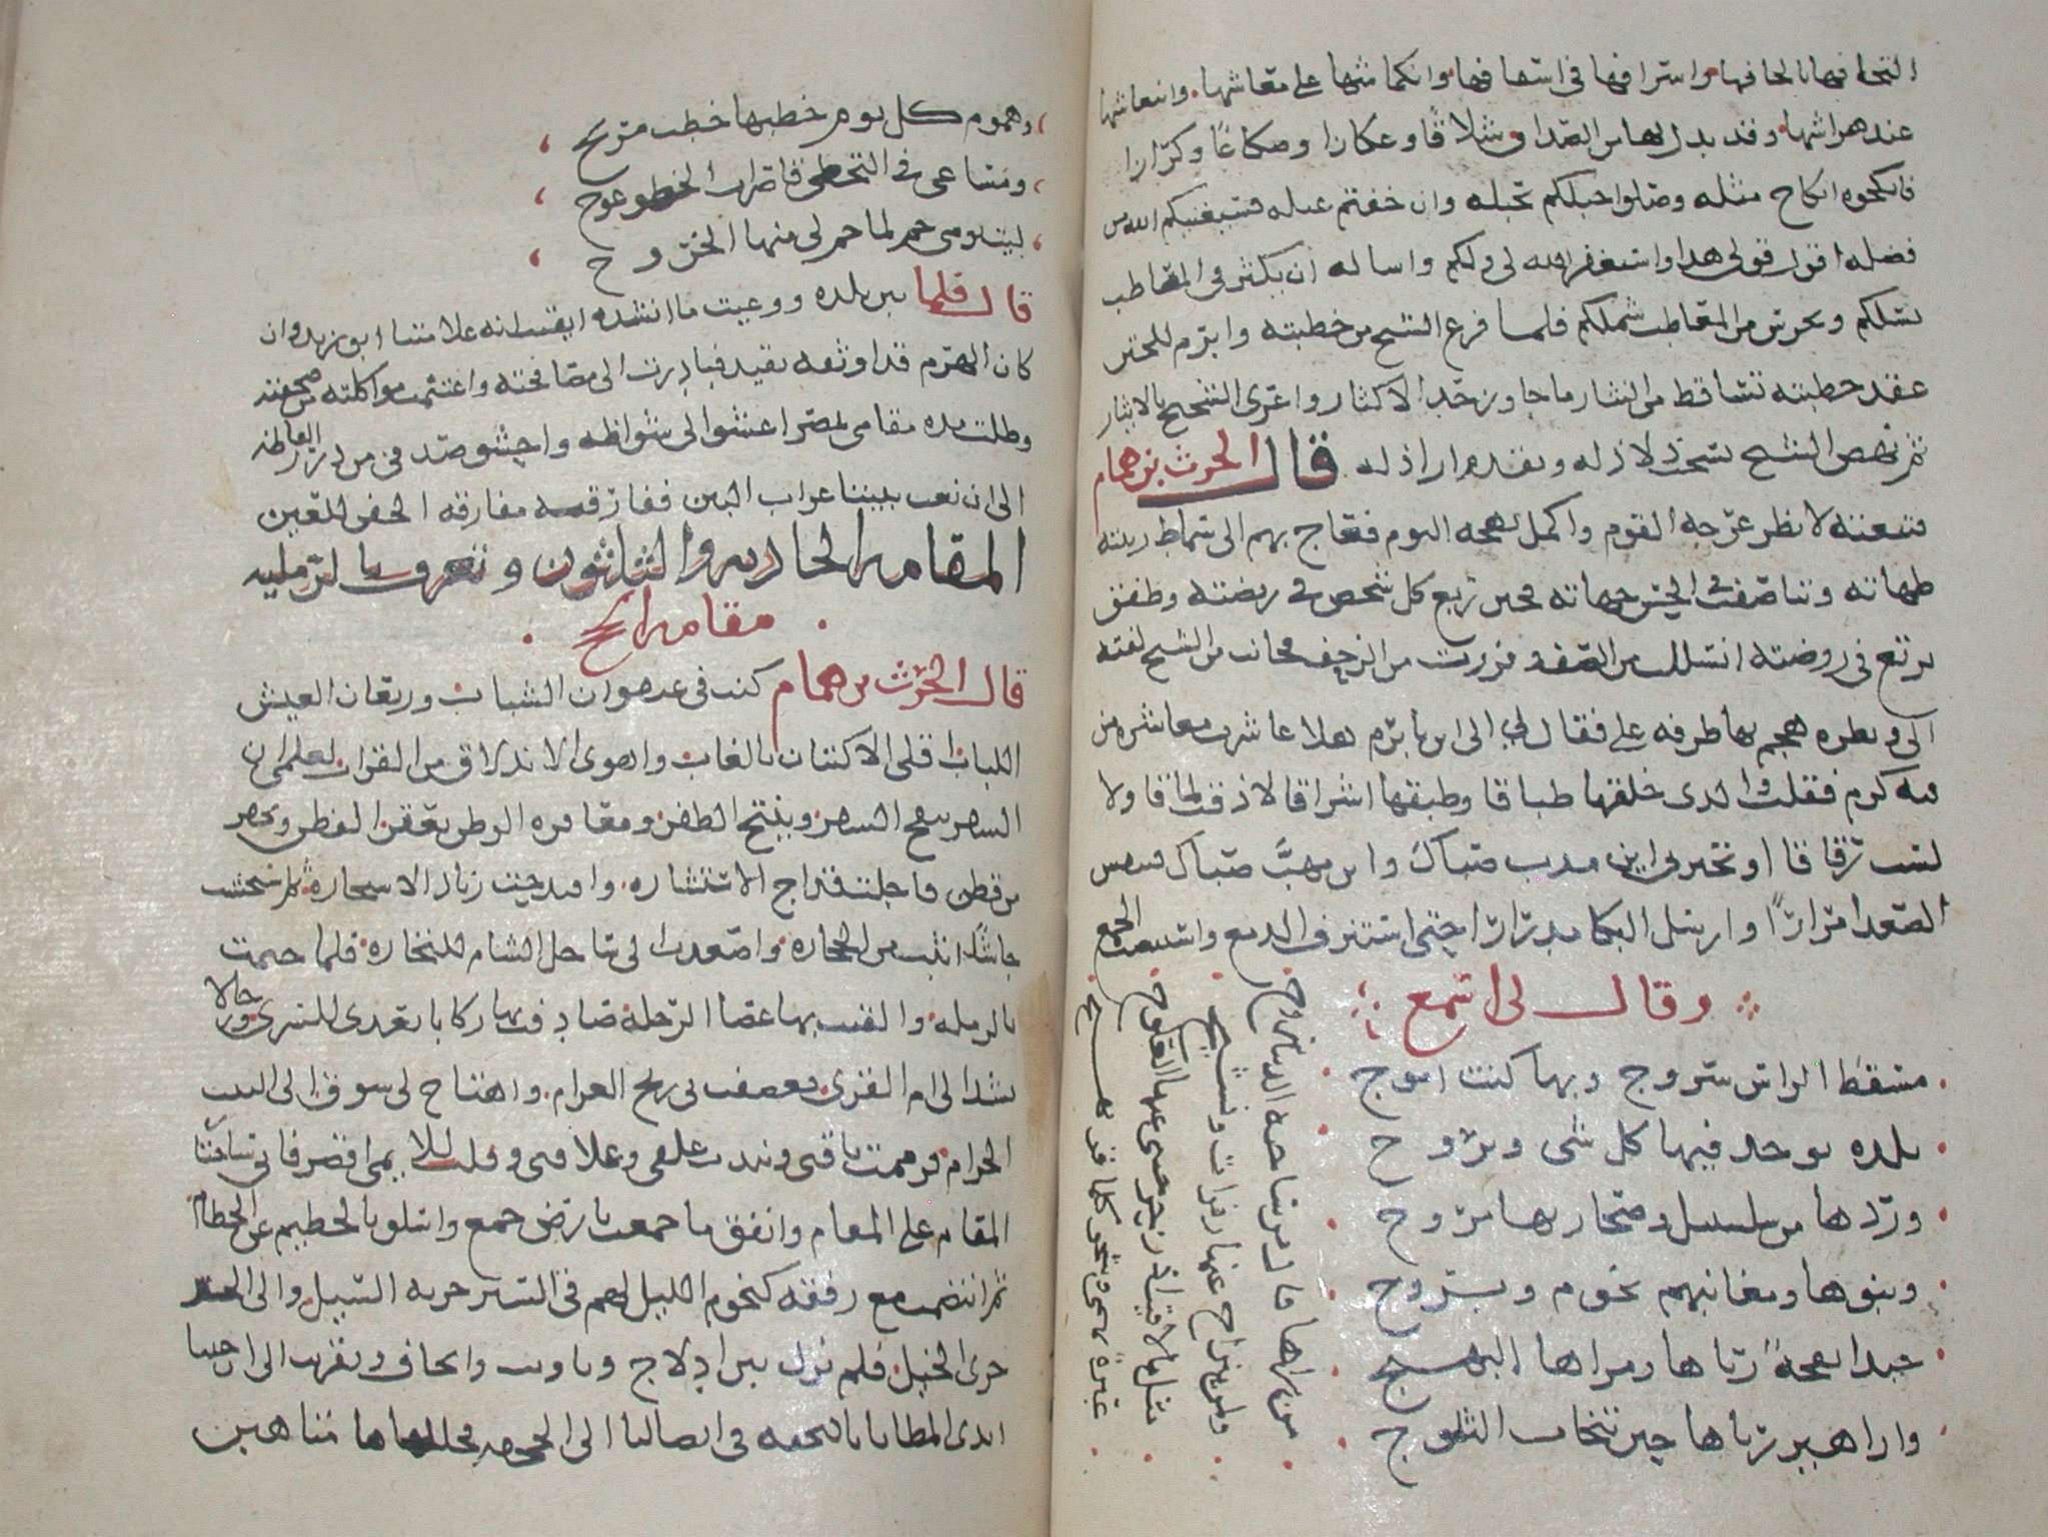 التحافها بالحافها واسرافها في اسفافها وانكماشها على معاشها وانتعاشها
عند هراشها وقد بذل لها من الصداق شلاقا وعكازا وصقاعا وكرازا
فانكحوه انكاح مثله وصلوا حبلكم بحبله وان خفتم عيله فسيغنيكم الله من
فضله اقول قولى هذا واستغفر الله لى ولكم واساله ان يكثر فى المصاطب
نسلكم ويحرس من المعاطب شملكم فلما فرغ الشيخ من خطبته وابرم للختن
عقد خطبته تساقط من النثار ما جاوز حد الاكثار واغرى الشحيح بالايثار
ثم نهض الشيخ يسحب ذلاذله ويقدم اراذله قال الحرث بن همام
فتبعته لانظر عرجة القوم واكمل بهجه اليوم فعاج بهم الى سماط زينته
طهاته وتناصفت فى الحسن جهاته فحين ربع كل شخص فى ربضته وطفق
يرتع فى روضته انسللت من الصف وفررت من الزحف فحانت من الشيخ لفته
الى ونظره هجم بها طرفه على فقال لى الى اين يا برم هلا عاشرت معاشره من
فيه كرم فقلت والذى خلقها طباقا وطبقها اشراقا لا ذقت لماقا ولا
لست رقاقا او تخبرنى اين مدب صباك واين مهب صباك فتنفس
الصعدا مرارًا وارسل البكا مدرارًا حتى استنزف الدمع واستنصت الجمع
وقال لى اسمع
مسقط الراس سروج وبها كنت اموج
بلده يوجد فيها كل شى ويروج
وردها من سلسبيل وصحاريها مروج
وبنوها ومغانيهم نجوم وبروج
حبذا نفحة رياها ومراها البهيج
وازاهير رباها حين تنجاب الثلوج
من راها قال مرسا جنه الدنيا سروج
ولمن ينزاح عنها زفرات ونشيج
مثل ما لاقيت اذ زحزحنى عنها العلوج
عبرة تهمى وشجو كلما قر يهيج
وهموم كل يوم خطبها خطب مريج
ومساعى فى الترجى قاصرات الخطو عوج
ليت يومى حم لما حم لى منها الخروج
قال فلما بين بلده ووعيت ما انشده ايقنت انه علامتنا ابو زيد وان
كان الهرم قد اوثقه بقيد فبادرت الى مصافحته واغتنمت مواكلته من صحفته
وظلت مده مقامى بمصر اعشوا الى شواظه واحشو صدفى من درر الفاظه
الى ان نعب بيننا غراب البين ففارقته مفارقه الجفن للعين
المقامه الحاديه والثلاثون وتعرف بالرمليه
مقامه الحج
قال الحرث بن همام كنت فى عنفوان الشباب وريعان العيش
اللباب اقلى الاكتنان بالغاب واهوى الاندلاق من القراب لعلمى ان
السفر ينفج السفر وينتج الظفر ومعاقره الوطن تعقر الفطن وتحقر
من قطن فاجلت قداح الاستشاره واقتدحت زناد الاستخارة ثم استجشت
جاشًا اثبت من الحجاره واصعدت الى ساحل الشام للتجاره فلما خيمت
بالرمله والقيت بها عصا الرحلة صادفت بها ركابا تعد للسرى ورحالا
تشد الى ام القرى فعصفت بى ريح الغرام واهتاج لى شوق الى البيت
الحرام فزممت ناقتى ونبذت علقى وعلاقتى وقلت للايمى اقصر فانى ساختار
المقام على المقام وانفق ما جمعت بارض جمع واسلو بالحطيم عن الحطام
ثم انتظمت مع رفقه كنجوم الليل لهم فى السير جريه السيل والى الخير
جرى الخيل فلم نزل بين ادلاج وتاويب وايجاف وتقريب الى ان حبتنا
ايدى المطايا بالتحفه فى ايصالنا الى الجحفه فحللناها متاهبين